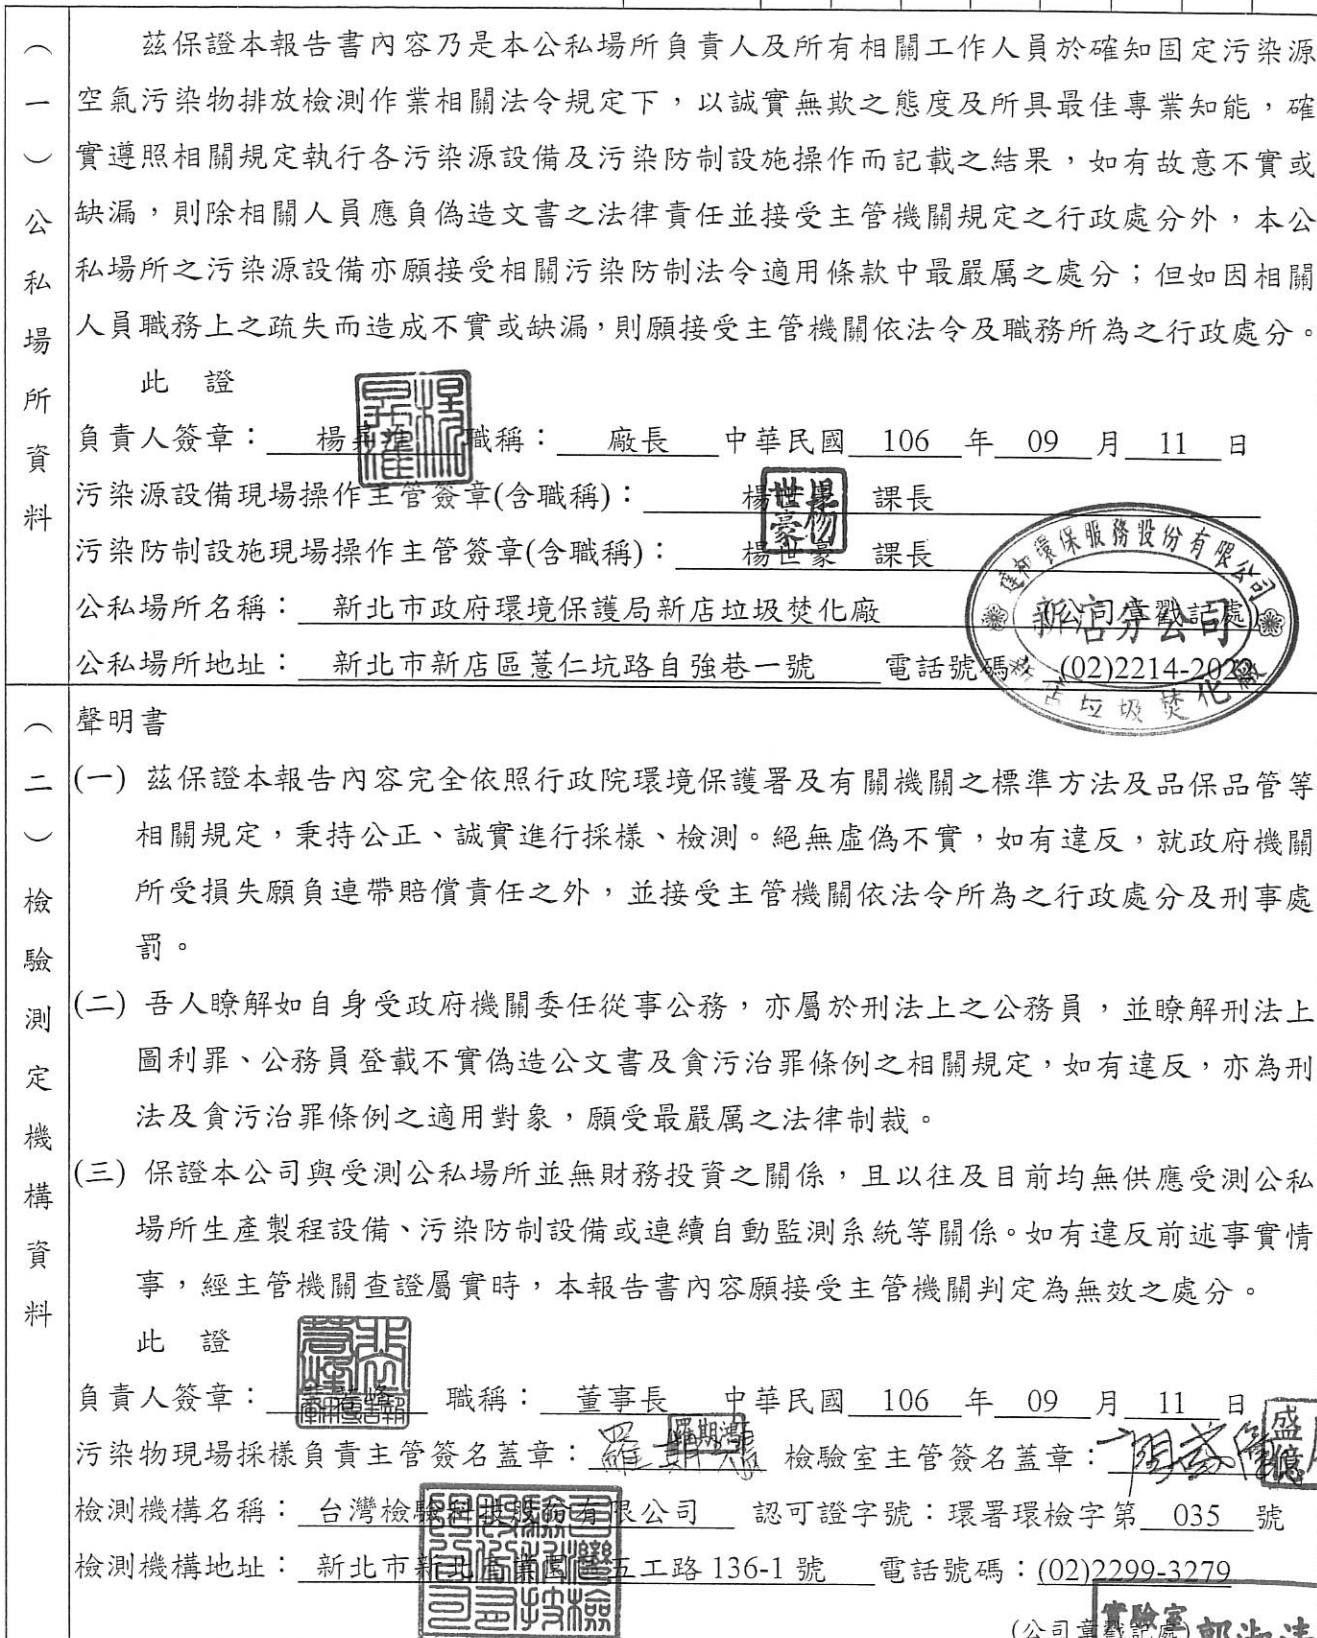 (一)公私場所資料
茲保證本報告書內容乃是本公私場所負責人及所有相關工作人員於確知固定污染源
空氣污染物排放檢測作業相關法令規定下，以誠實無欺之態度及所具最佳專業知能，確
實遵照相關規定執行各污染源設備及污染防制設施操作而記載之結果，如有故意不實或
缺漏，則除相關人員應負偽造文書之法律責任並接受主管機關規定之行政處分外，本公
私場所之污染源設備亦願接受相關污染防制法令適用條款中最嚴厲之處分；但如因相關
人員職務上之疏失而造成不實或缺漏，則願接受主管機關依法令及職務所為之行政處分。
此 證
負責人簽章： 楊 職稱： 廠長 中華民國 106 年 09 月 11 日
污染源設備現場操作主管簽章(含職稱)： 楊世豪 課長
楊世豪
污染防制設施現場操作主管簽章(含職稱)： 楊世豪 課長
公私場所名稱： 新北市政府環境保護局新店垃圾焚化廠 (公司章戳記處)
公私場所地址： 新北市新店區薏仁坑路自強巷一號 電話號碼 (02)2214-202
環保服務股份有限公司
新店分公司
新店垃圾焚化廠
(二)檢驗測定機構資料
聲明書
(一) 茲保證本報告內容完全依照行政院環境保護署及有關機關之標準方法及品保品管等
相關規定，秉持公正、誠實進行採樣、檢測。絕無虛偽不實，如有違反，就政府機關
所受損失願負連帶賠償責任之外，並接受主管機關依法令所為之行政處分及刑事處
罰。
(二) 吾人瞭解如自身受政府機關委任從事公務，亦屬於刑法上之公務員，並瞭解刑法上
圖利罪、公務員登載不實偽造公文書及貪污治罪條例之相關規定，如有違反，亦為刑
法及貪污治罪條例之適用對象，願受最嚴厲之法律制裁。
(三) 保證本公司與受測公私場所並無財務投資之關係，且以往及目前均無供應受測公私
場所生產製程設備、污染防制設備或連續自動監測系統等關係。如有違反前述事實情
事，經主管機關查證屬實時，本報告書內容願接受主管機關判定為無效之處分。
此 證
負責人簽章： 職稱： 董事長 中華民國 106 年 09 月 11 日
污染物現場採樣負責主管簽名蓋章： 羅期 檢驗室主管簽名蓋章：
盛億
檢測機構名稱： 台灣檢驗科技股份有限公司 認可證字號：環署環檢字第 035 號
檢測機構地址： 新北市新北產業園區五工路 136-1 號 電話號碼：(02)2299-3279
(公司章戳記處)
實驗室